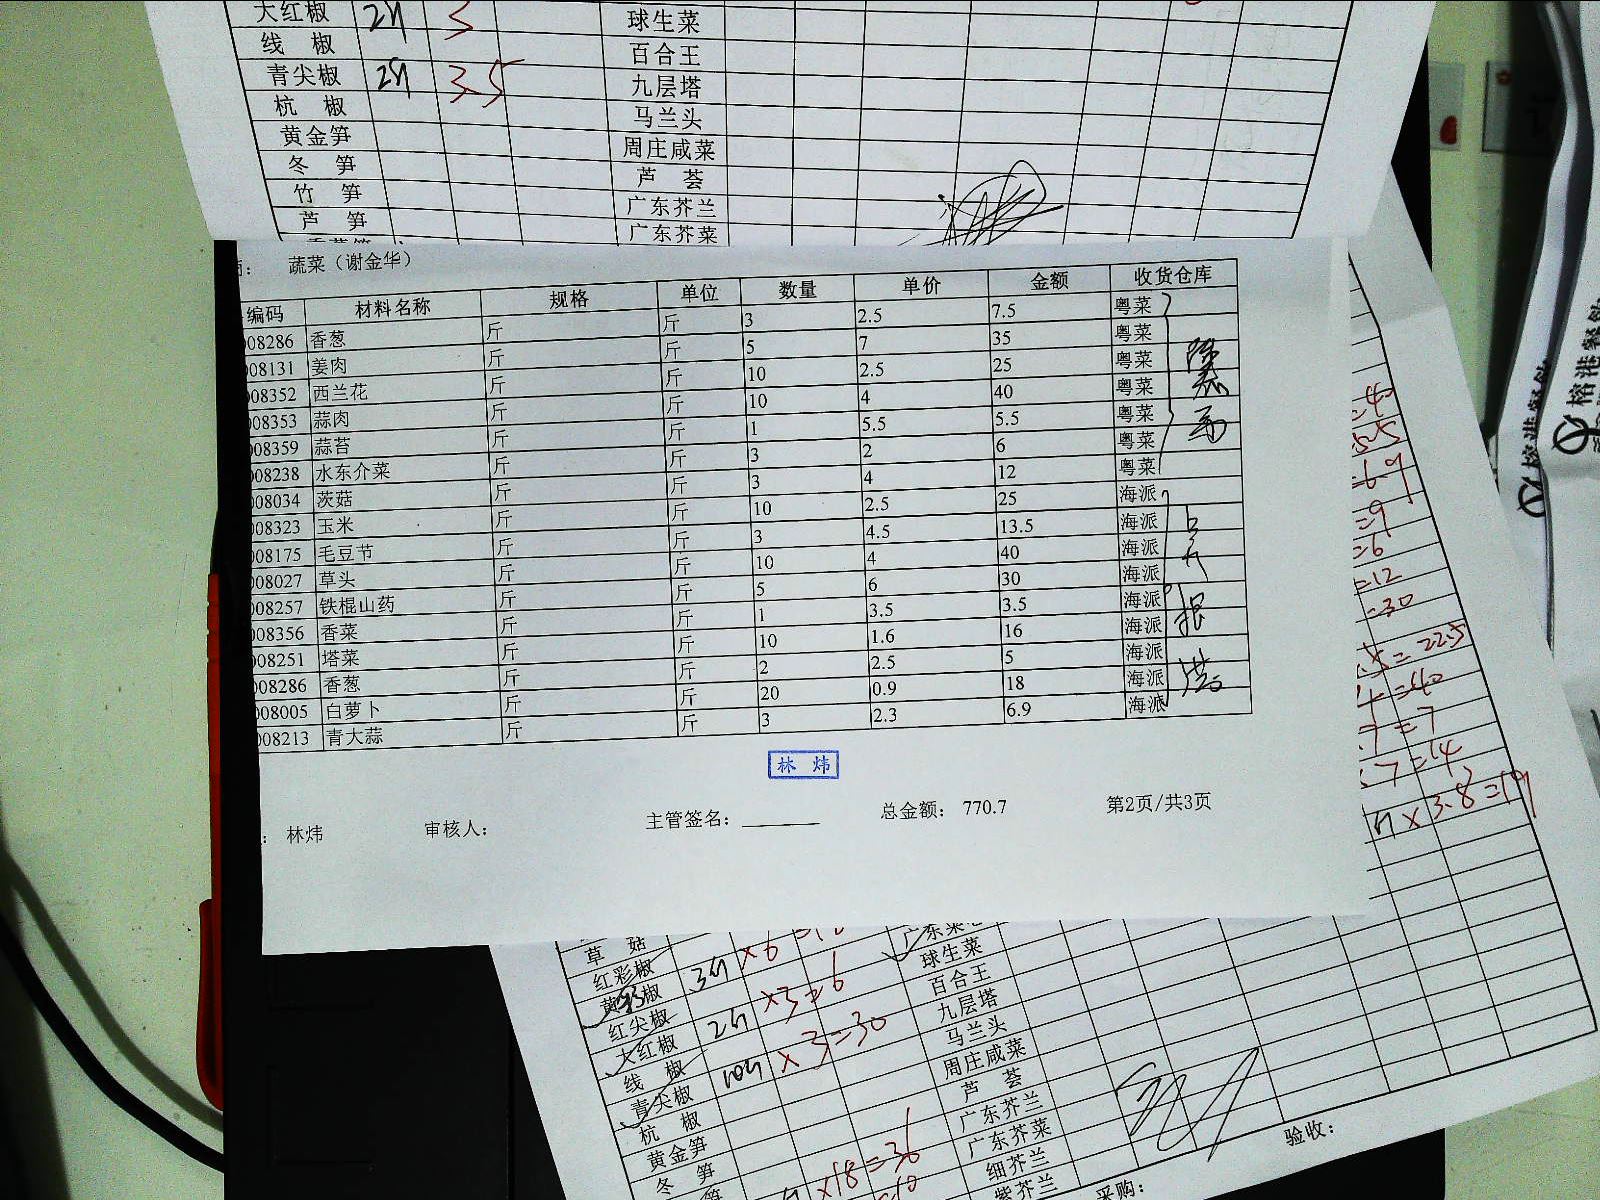 大红椒 2斤 3 球生菜
线 椒 百合王
青尖椒 2斤 3.5 九层塔
杭 椒 马兰头
黄金笋 周庄咸菜
冬 笋 芦 荟
竹 笋 广东芥兰
芦 笋 广东芥菜
蔬菜（谢金华）
编码 材料名称 规格 单位 数量 单价 金额 收货仓库
08286 香葱 斤 斤 3 2.5 7.5 粤菜
08131 姜肉 斤 斤 5 7 35 粤菜
08352 西兰花 斤 斤 10 2.5 25 粤菜
08353 蒜肉 斤 斤 10 4 40 粤菜
08359 蒜苔 斤 斤 1 5.5 5.5 粤菜
08238 水东介菜 斤 斤 3 2 6 粤菜
08034 茨菇 斤 斤 3 4 12 粤菜
08323 玉米 斤 斤 10 2.5 25 海派
08175 毛豆节 斤 斤 3 4.5 13.5 海派
08027 草头 斤 斤 10 4 40 海派
08257 铁棍山药 斤 斤 5 6 30 海派
08356 香菜 斤 斤 1 3.5 3.5 海派
08251 塔菜 斤 斤 10 1.6 16 海派
08286 香葱 斤 斤 2 2.5 5 海派
08005 白萝卜 斤 斤 20 0.9 18 海派
08213 青大蒜 斤 斤 3 2.3 6.9 海派
林 炜
林炜 审核人： 主管签名： 总金额： 770.7 第2页/共3页
=9
=6
=12
=30
= 22.5
=40
=7
=14
斤 ×3.8=19
草 菇 广东菜
红彩椒 3斤 ×6 球生菜
黄彩椒 百合王
红尖椒 2斤 ×3=6 九层塔
大红椒 马兰头
线 椒 10斤 ×3=30 周庄咸菜
青尖椒 芦 荟
杭 椒 广东芥兰
黄金笋 广东芥菜
冬 笋 ×18=36 细芥兰
笋 紫芥兰
采购： 验收：
榕港餐饮